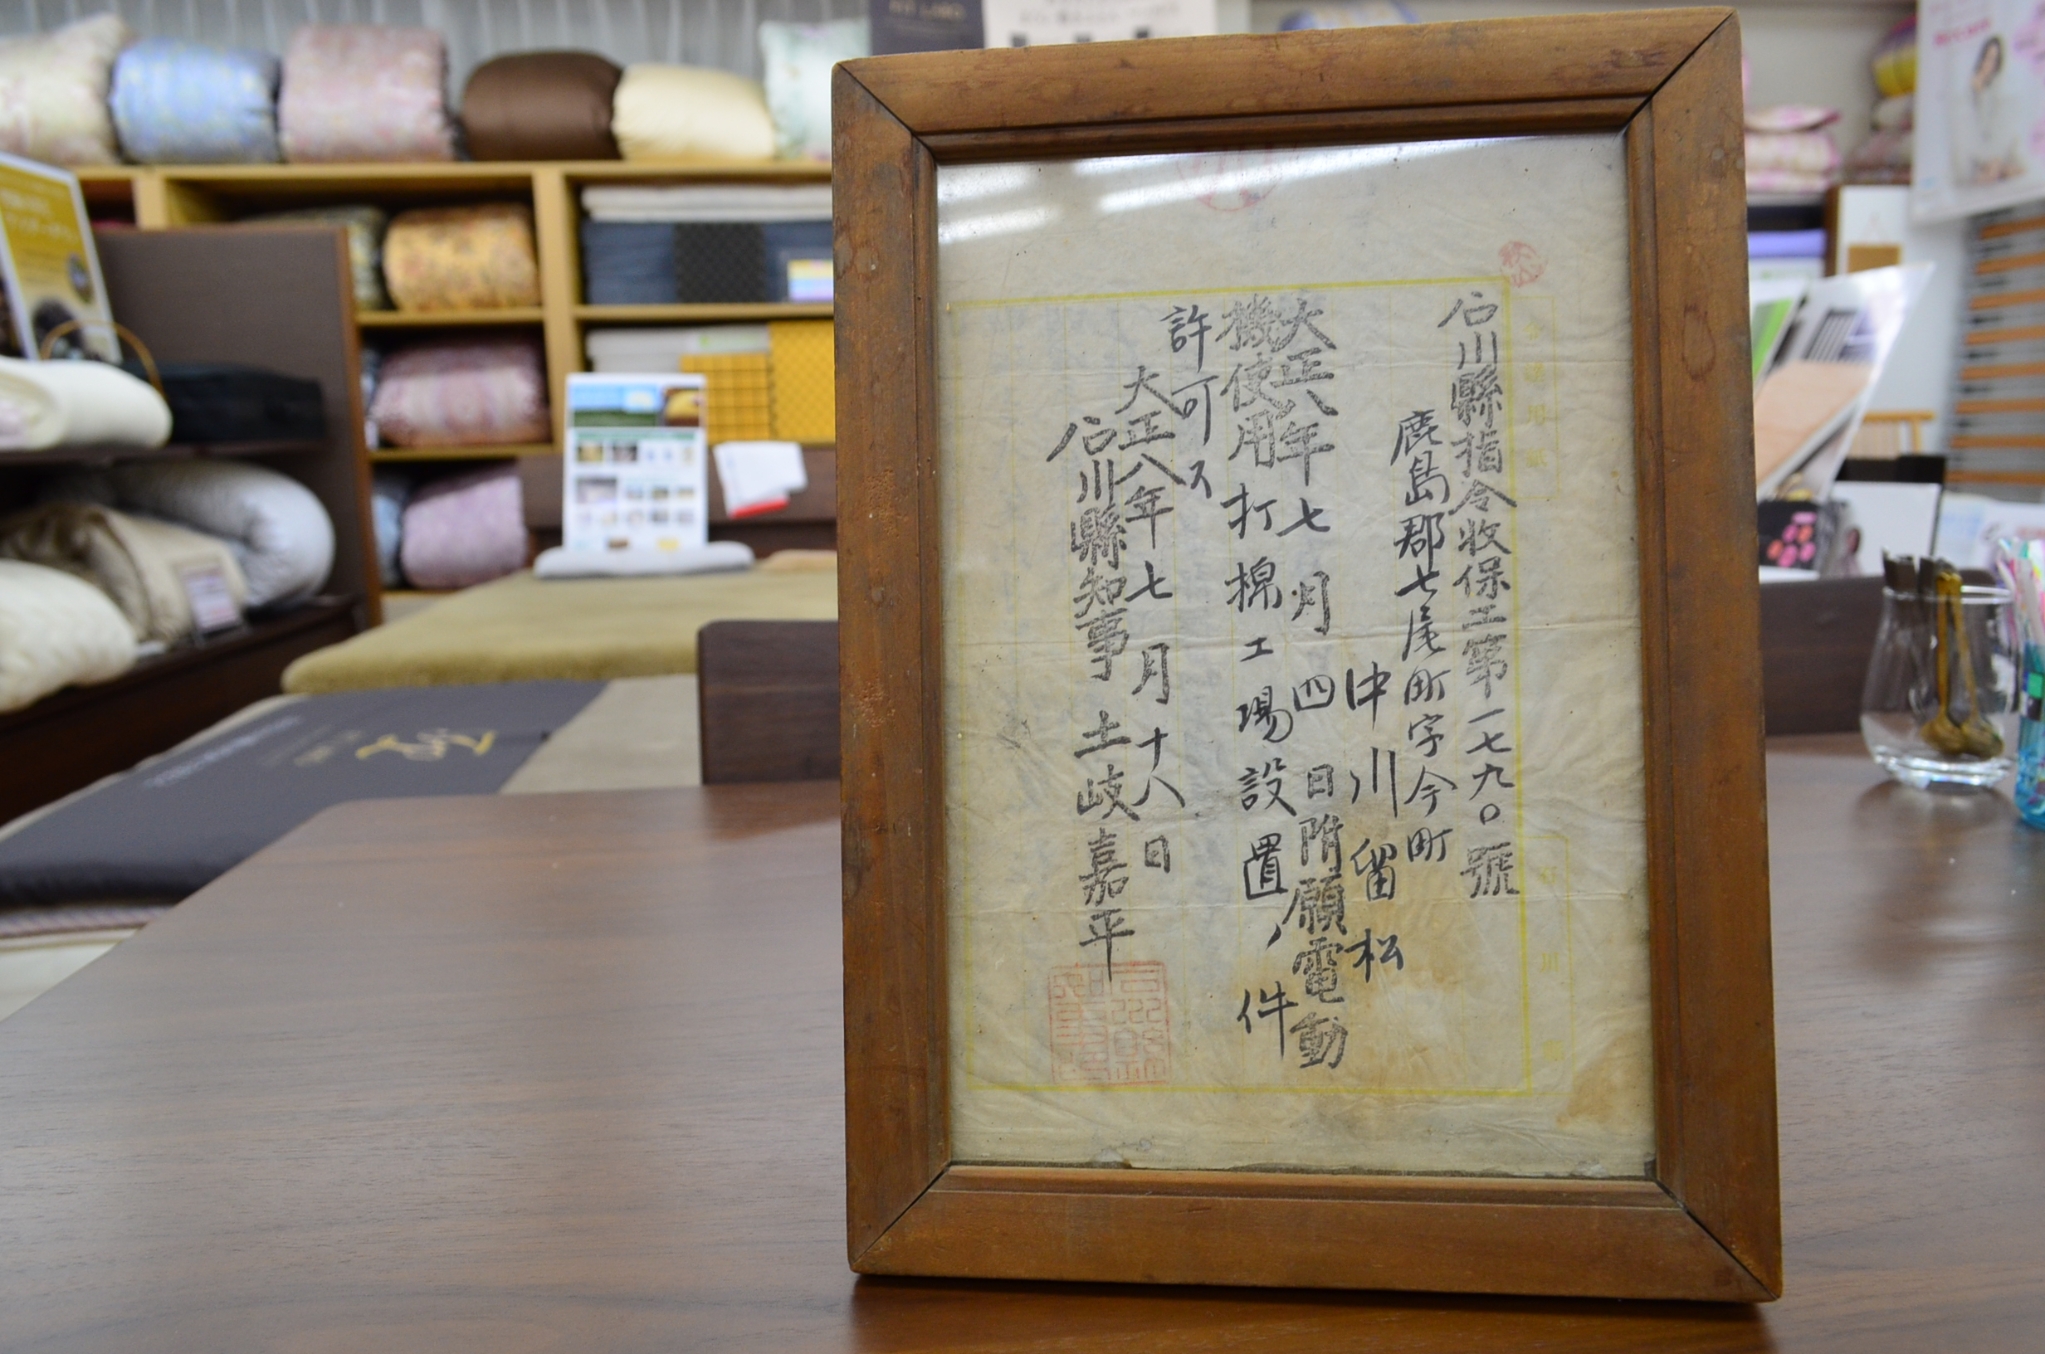 石川縣指令收保工第一七九〇號
鹿島郡七尾町字今町
中川留松
大正八年七月四日附願電動
機使用打棉工場設置ノ件
許可ス
大正八年七月十八日
石川縣知事 土岐嘉平